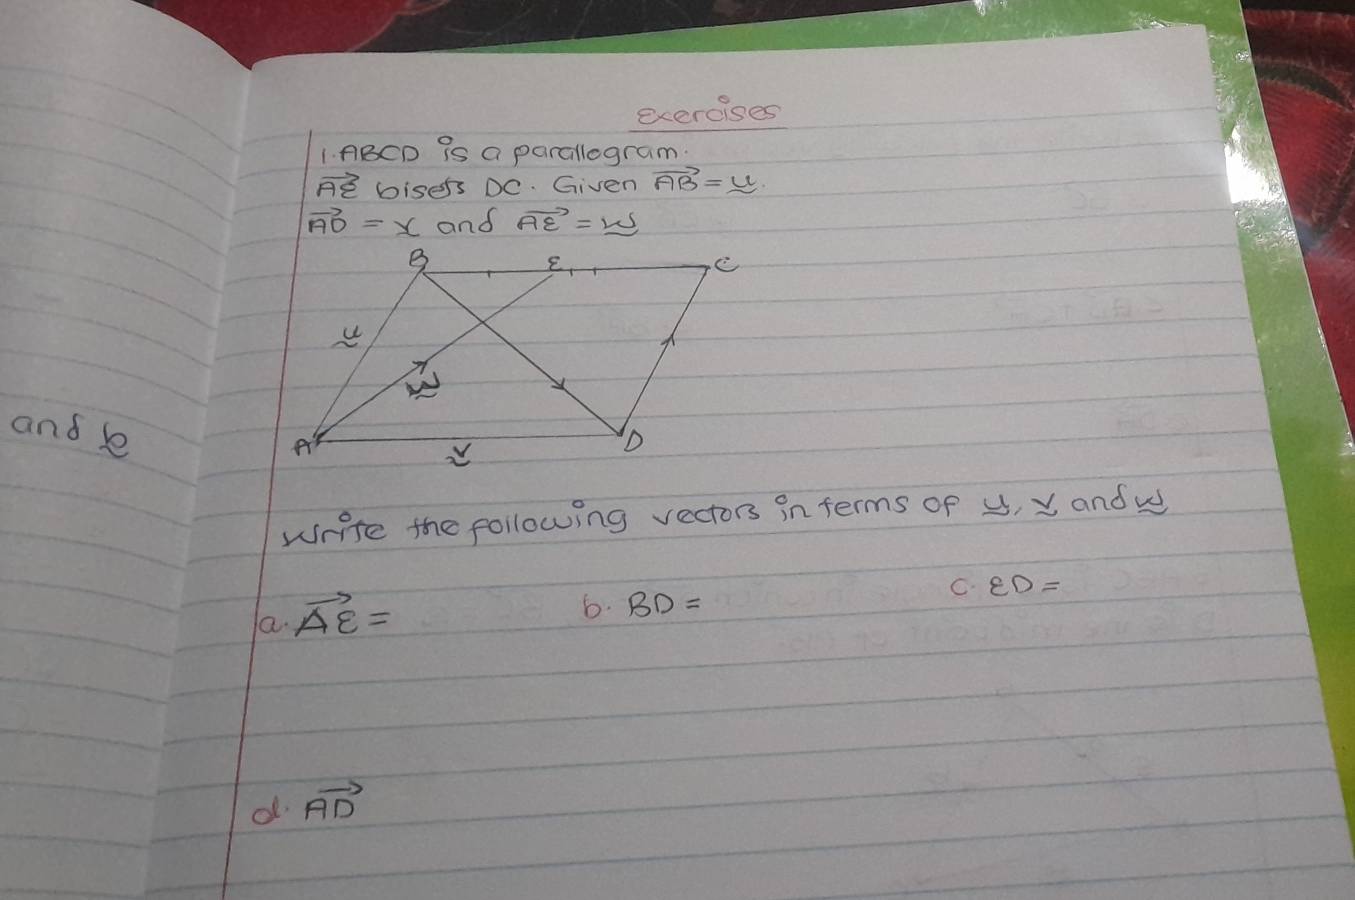 Exercises
1. ABCD is a parallogram.
AE bisets DC. Given AB = u.
AD = v and AE = w
B E C
u
w
A v D
and b
Write the following vectors in terms of u, v and w
a. AE = b. BD = c. ED =
d. AD